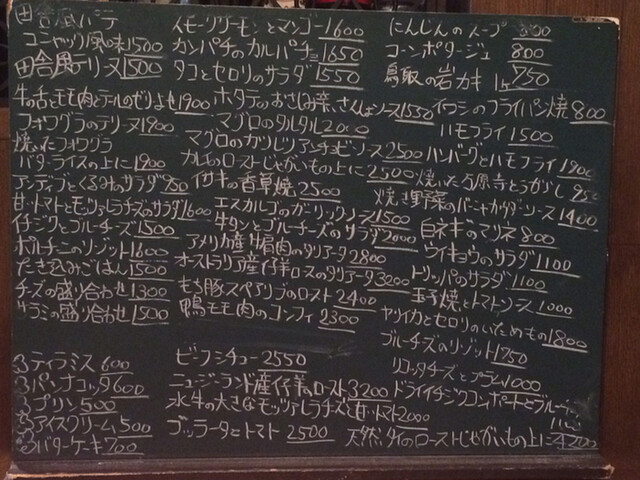 田舎風パテ
コニャック風味1500
田舎風テリーヌ1500
牛の舌とモモ肉とテールのゼリよせ1900
フォワグラのテリーヌ1900
焼いたフォワグラ
バターライスの上に1900
アンディブとくるみのサラダ950
甘トマトとモッツァレラチーズのサラダ1600
イチジクとブルーチーズ1500
ポルチーニのリゾット1600
たき込みごはん1500
チーズの盛り合わせ1300
サラミの盛り合わせ1500
ティラミス600
パンナコッタ600
プリン500
アイスクリーム500
バターケーキ700
スモークサーモンとマンゴー1600
カンパチのカルパチョ1650
タコとセロリのサラダ1550
ホタテのおさしみ 1550
マグロのタルタル2000
マグロのカツレツアンチョビソース2500
カレイのローストじゃがいもの上に2500
イサキの香草焼2500
エスカルゴのガーリックソース1500
牛タンとブルーチーズのサラダ2000
アメリカ産牛肩肉のタリアータ2800
オーストラリア産仔羊ロースのタリアータ3200
もち豚スペアリブのロースト2400
鴨モモ肉のコンフィ2300
ビーフシチュー2550
ニュージーランド産仔羊のロースト3200
水牛の大きなモッツァレラチーズと甘トマト2000
ブッラータとトマト2500
にんじんのスープ 800
コーンポタージュ 800
鳥取の岩カキ 1ヶ750
イワシのフライパン焼800
ハモフライ1500
ハンバーグとハモフライ1900
焼いた万願寺とうがらし950
焼き野菜のバーニャカウダーソース1400
白ネギのマリネ800
ウイキョウのサラダ1100
トリッパのサラダ1100
玉子焼とトマトソース1000
ヤリイカとセロリのいためもの1800
ブルーチーズのリゾット1750
リコッタチーズとプラム1000
ドライイチジクコンポートとブルーチーズ
天然ダイのローストじゃがいもの上に